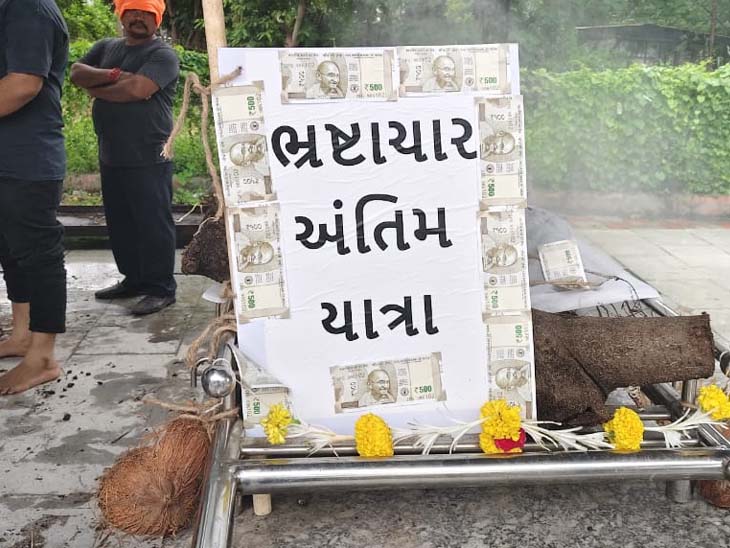 ભ્રષ્ટાચાર
અંતિમ
યાત્રા
₹500
₹500
₹500
₹500
₹500
₹500
₹500
₹500